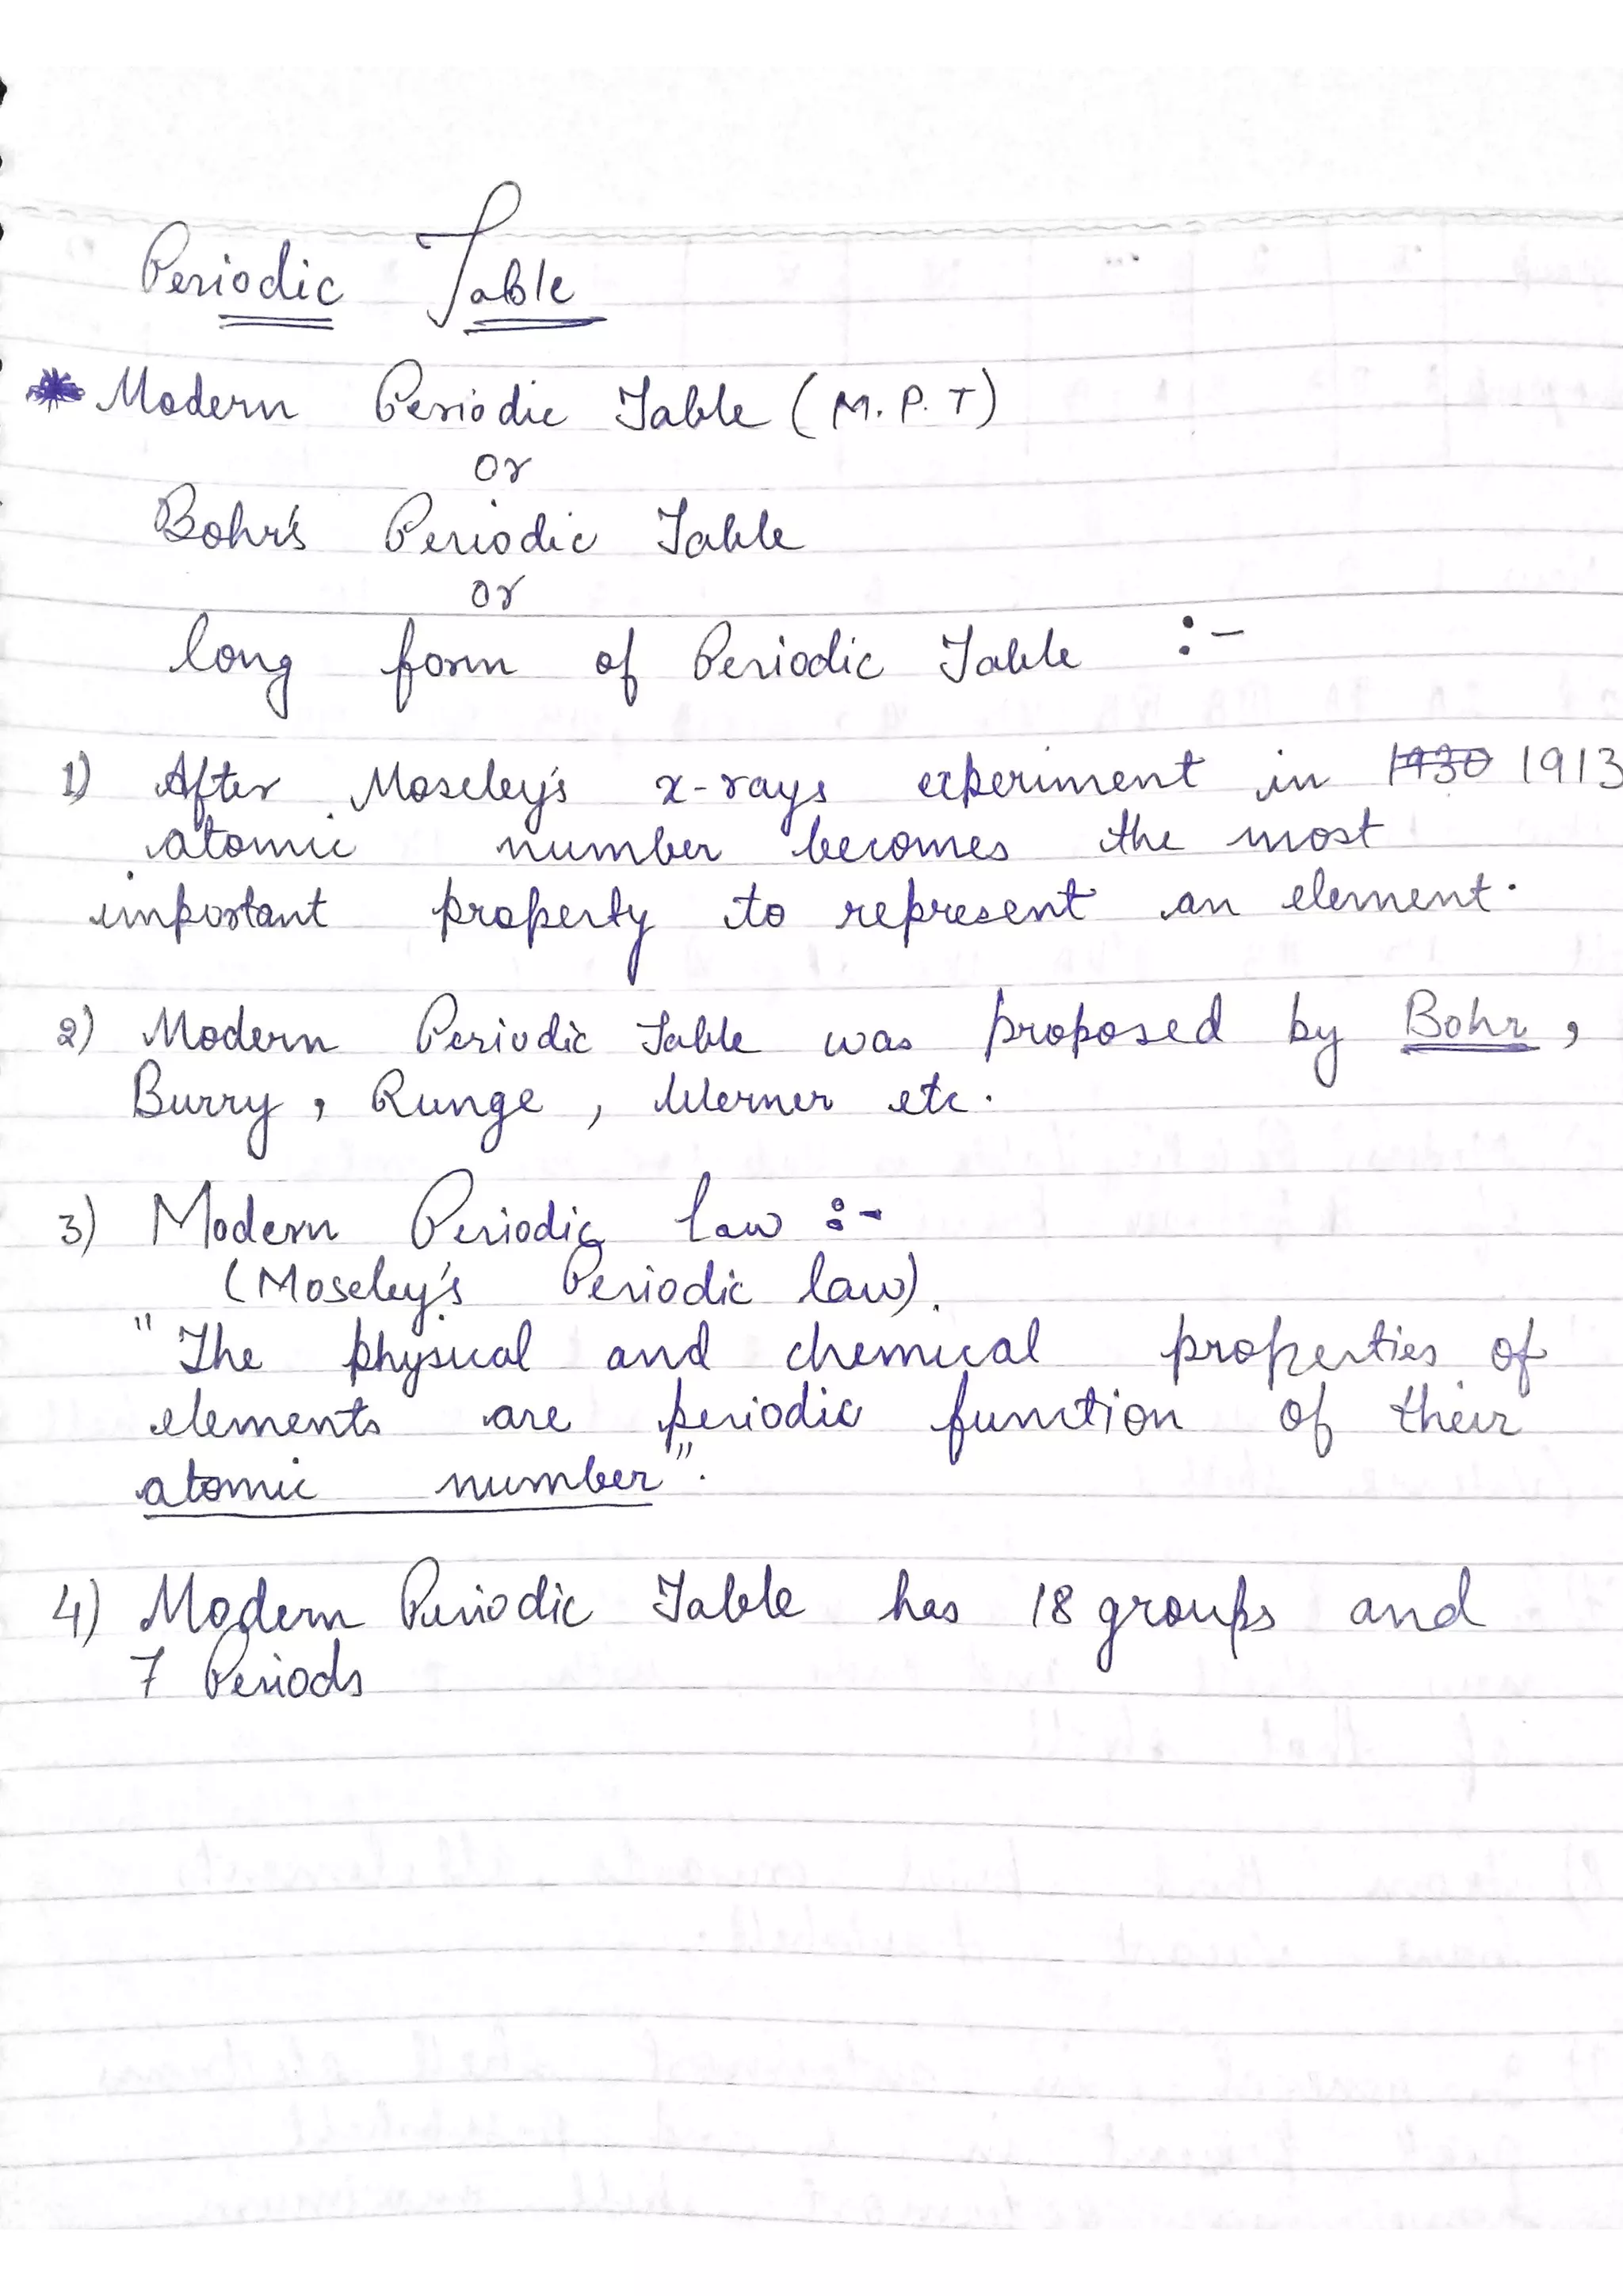 Periodic Table
Modern Periodic Table (M.P.T)
or
Bohr's Periodic Table
or
long form of Periodic Table :-
1) After Moseley's x-rays experiment in 1930 1913
atomic number becomes the most
important property to represent an element.
2) Modern Periodic Table was proposed by Bohr,
Burry, Runge, Werner etc.
3) Modern Periodic law :-
(Moseley's Periodic law).
"The physical and chemical properties of
elements are periodic function of their
atomic number".
4) Modern Periodic Table has 18 groups and
7 Periods